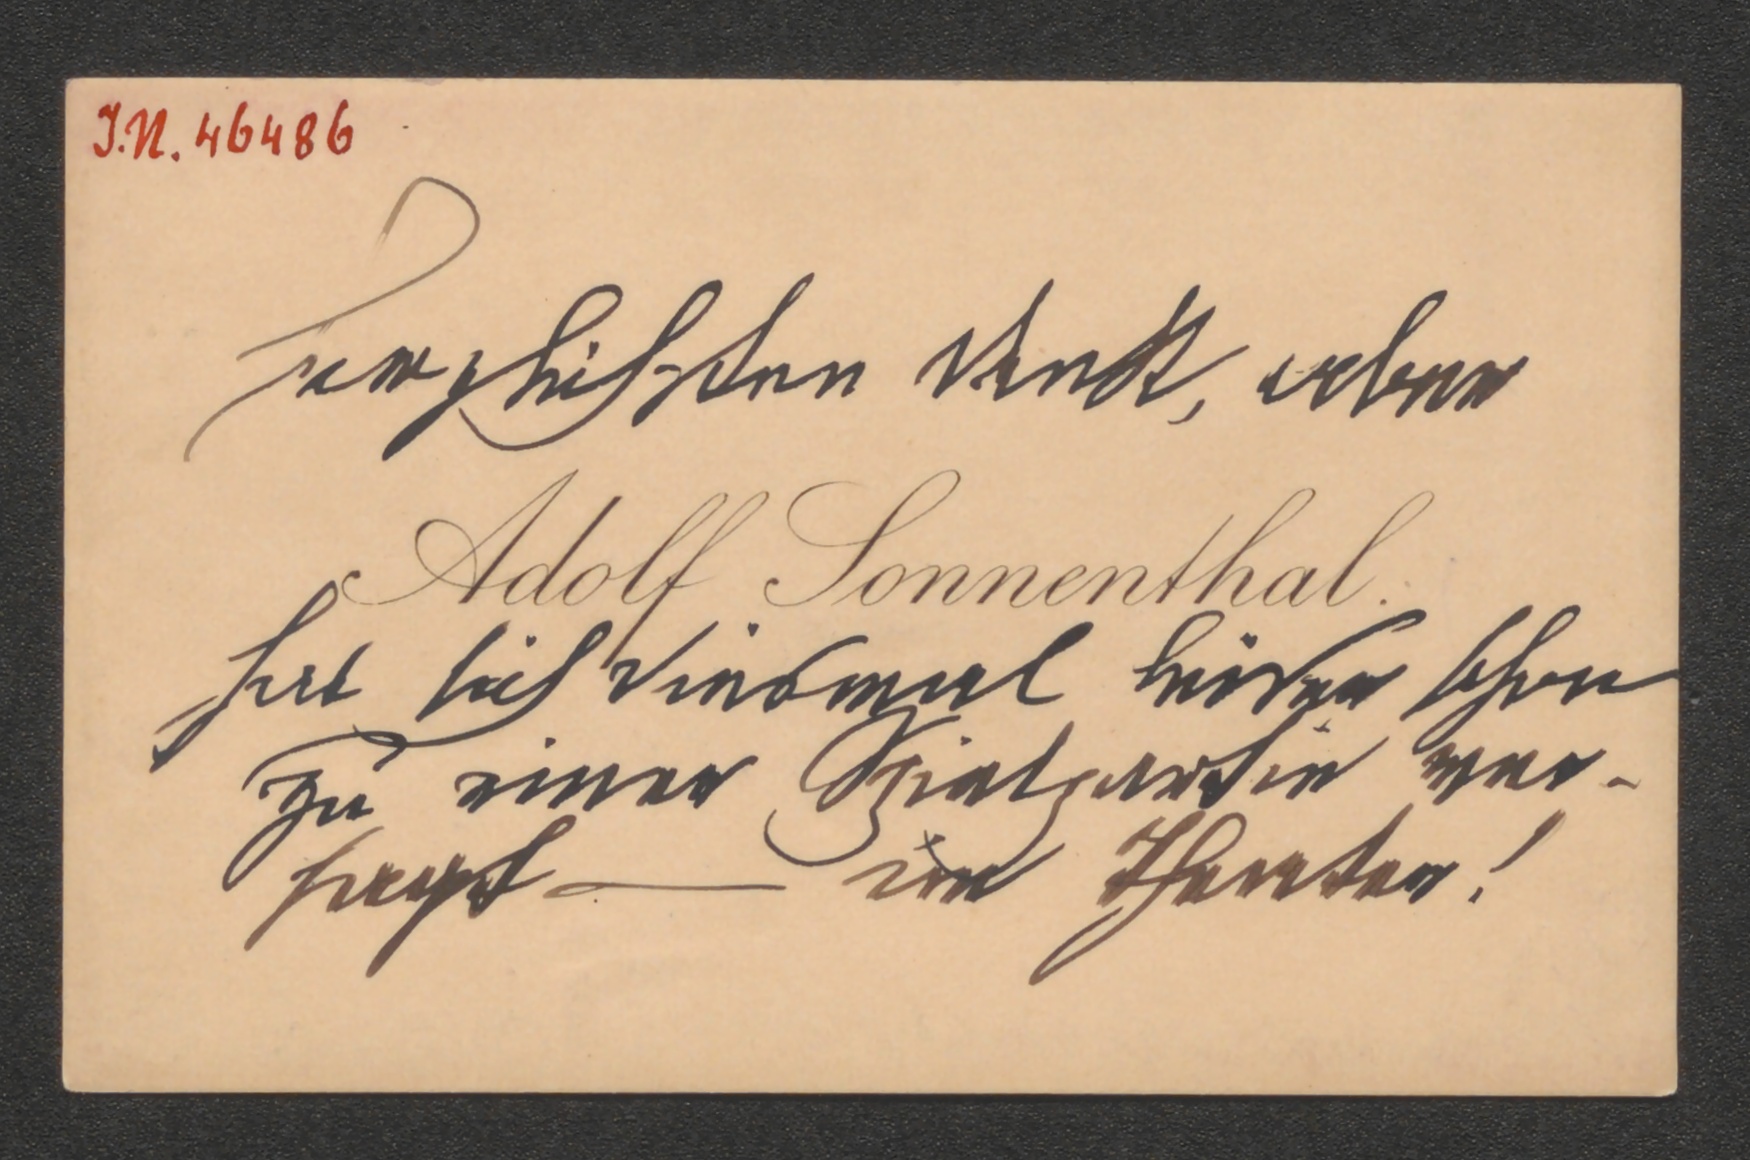 I.N. 46486
Herzlichsten Dank, aber
Adolf Sonnenthal.
hat sich diesmal leider schon
zu einer Spielpartie ver-
sagt — im Theater!